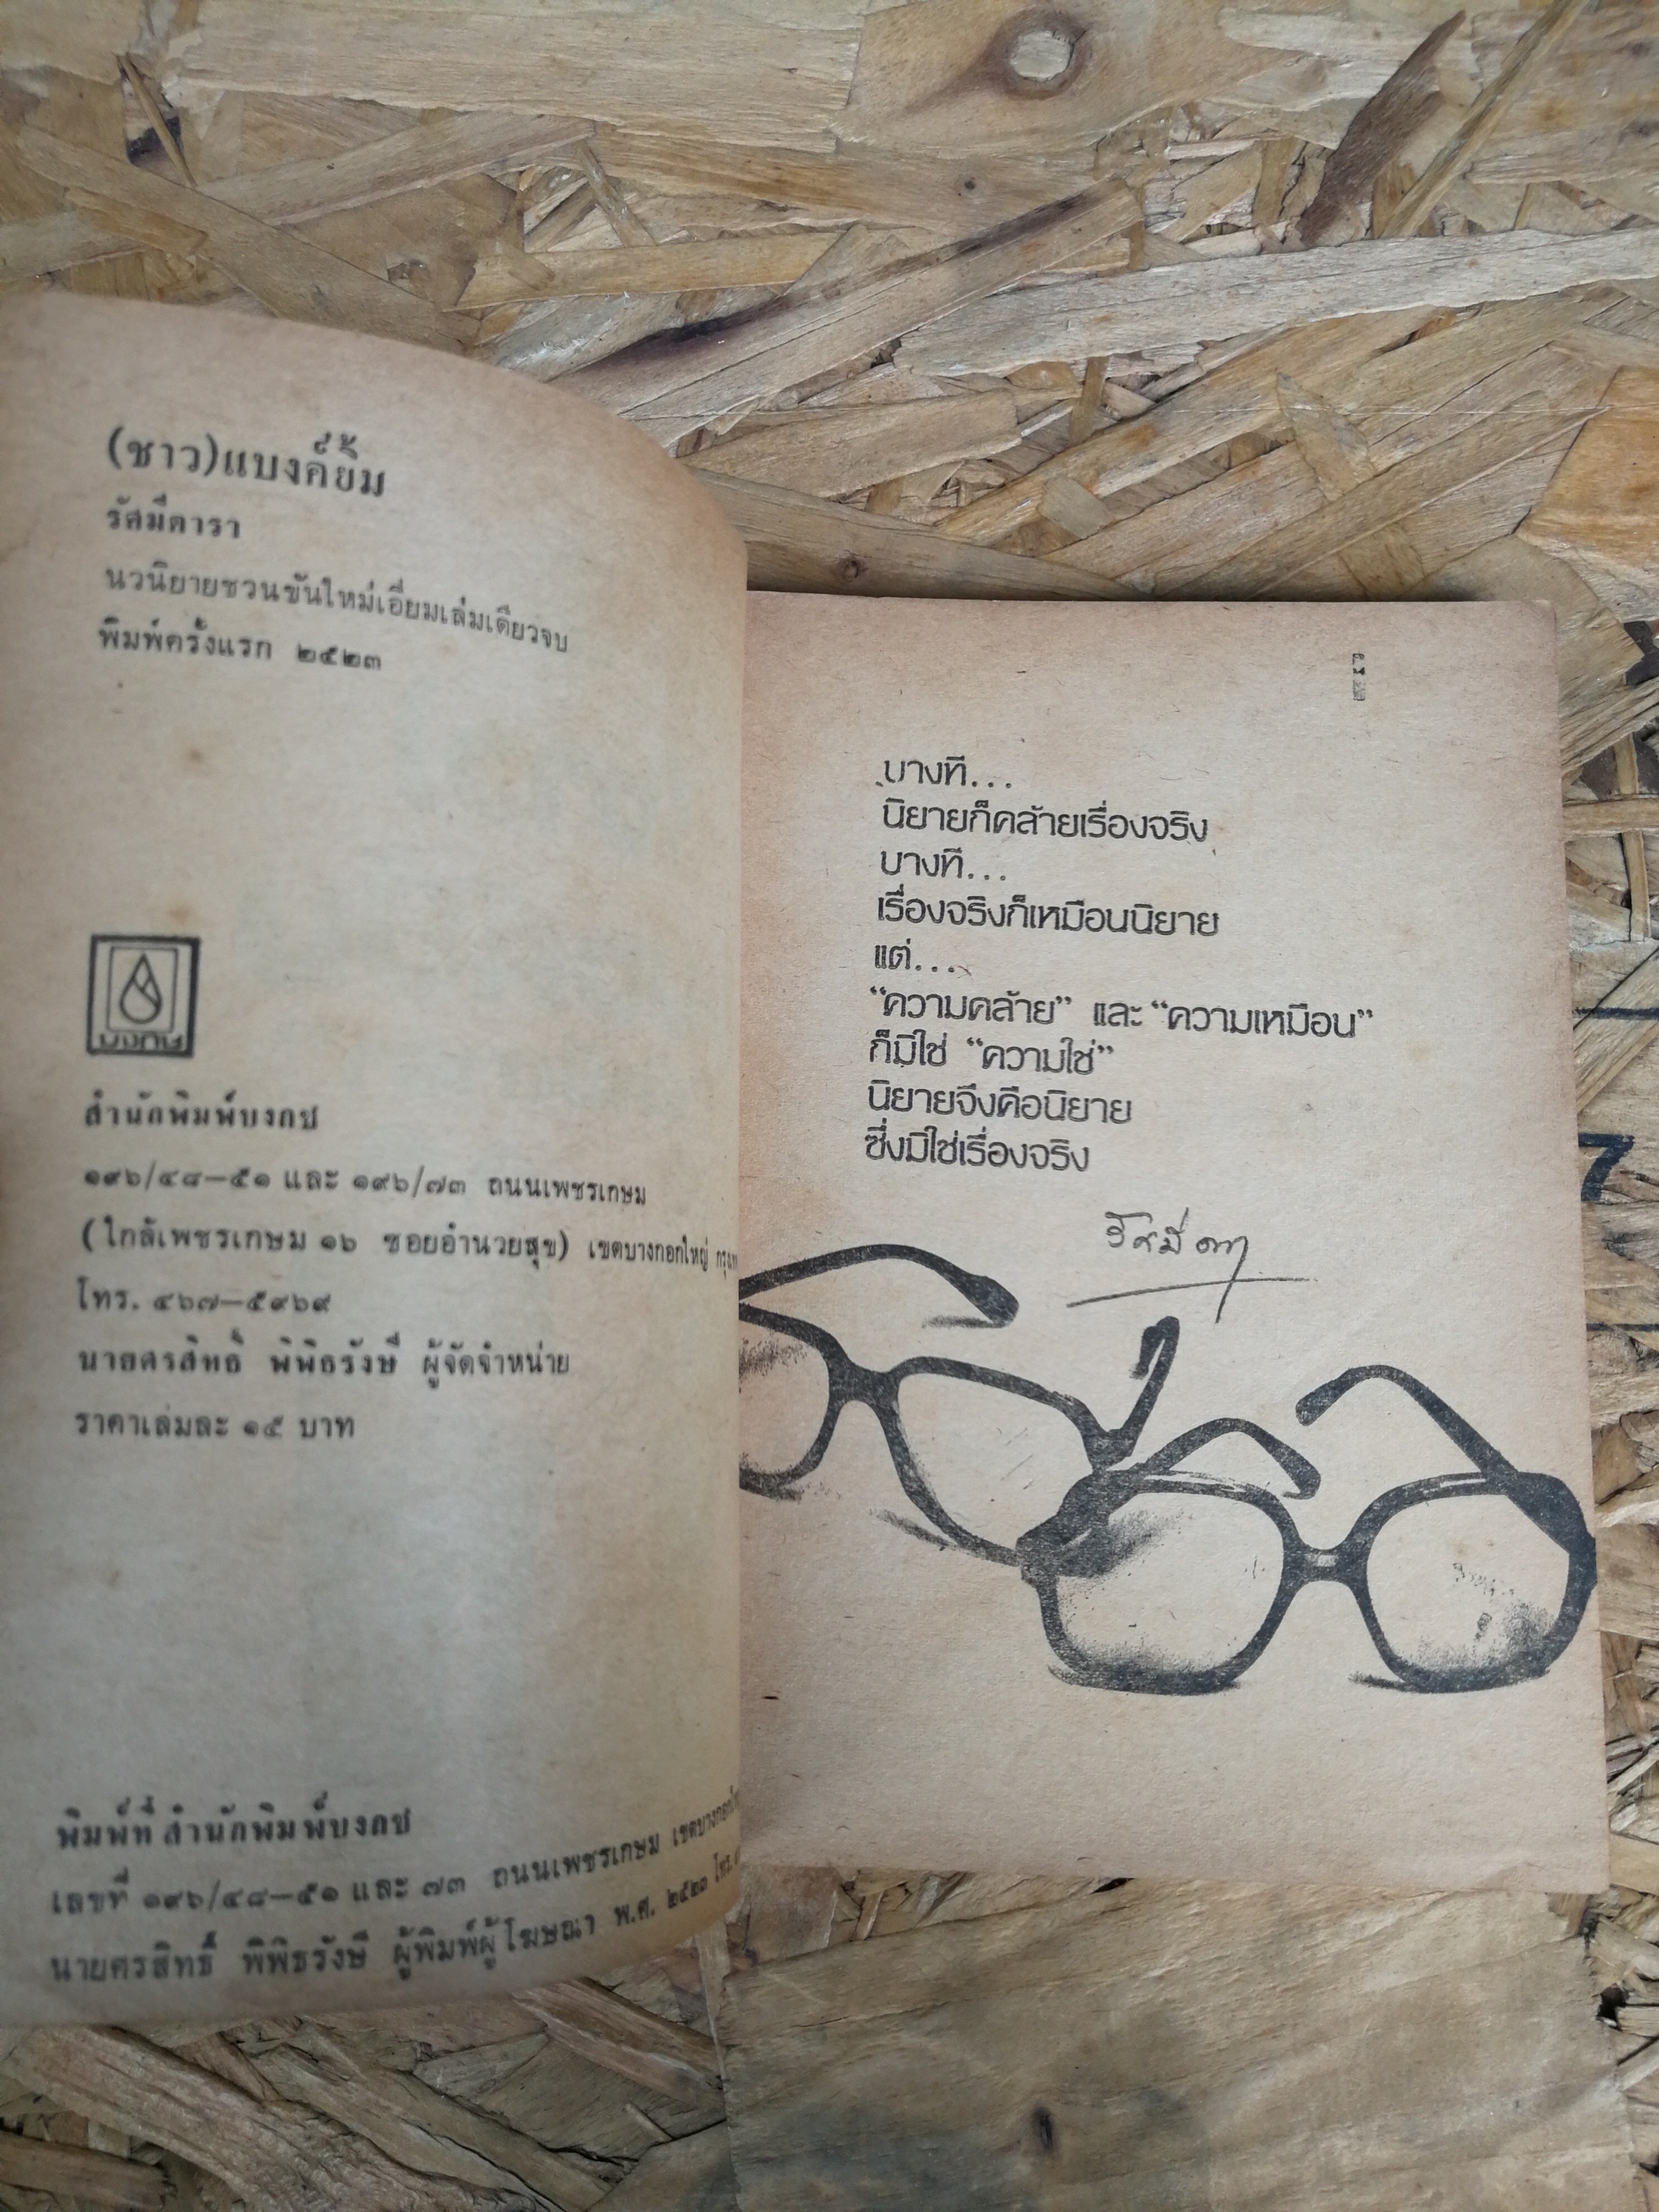 (ชาว)แบงค์ยิ้ม
รัศมีดารา
นวนิยายชวนขันใหม่เอี่ยมเล่มเดียวจบ
พิมพ์ครั้งแรก ๒๕๒๓
บงกช
สำนักพิมพ์บงกช
๑๙๖/๔๘–๕๑ และ ๑๙๖/๗๓ ถนนเพชรเกษม
(ใกล้เพชรเกษม ๑๖ ซอยอำนวยสุข) เขตบางกอกใหญ่
โทร. ๔๖๗–๕๙๖๙
นายศรสิทธิ์ พิพิธรังษี ผู้จัดจำหน่าย
ราคาเล่มละ ๑๕ บาท
พิมพ์ที่ สำนักพิมพ์บงกช
เลขที่ ๑๙๖/๔๘–๕๑ และ ๗๓ ถนนเพชรเกษม
นายศรสิทธิ์ พิพิธรังษี ผู้พิมพ์ผู้โฆษณา พ.ศ. ๒๕๒๓ โทร.
บางที...
นิยายก็คล้ายเรื่องจริง
บางที...
เรื่องจริงก็เหมือนนิยาย
แต่...
“ความคล้าย” และ “ความเหมือน”
ก็มิใช่ “ความใช่”
นิยายจึงคือนิยาย
ซึ่งมิใช่เรื่องจริง
7